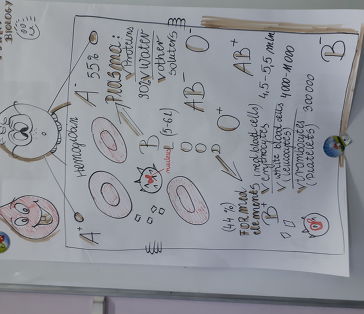 BIOLOGY
Hemoglobin
A⁻
55%
Plasma:
√ Proteins
90% water
√ other
solutes
AB⁻
O⁻
A⁺
B
nucleus
(5-6L)
O⁺
AB⁺
(44%)
FORMED
elements
(red blood cells)
4,5-5,5 mln
B⁺
√ white blood cells
(Leucocytes)
4000-11000
300 000
B⁻